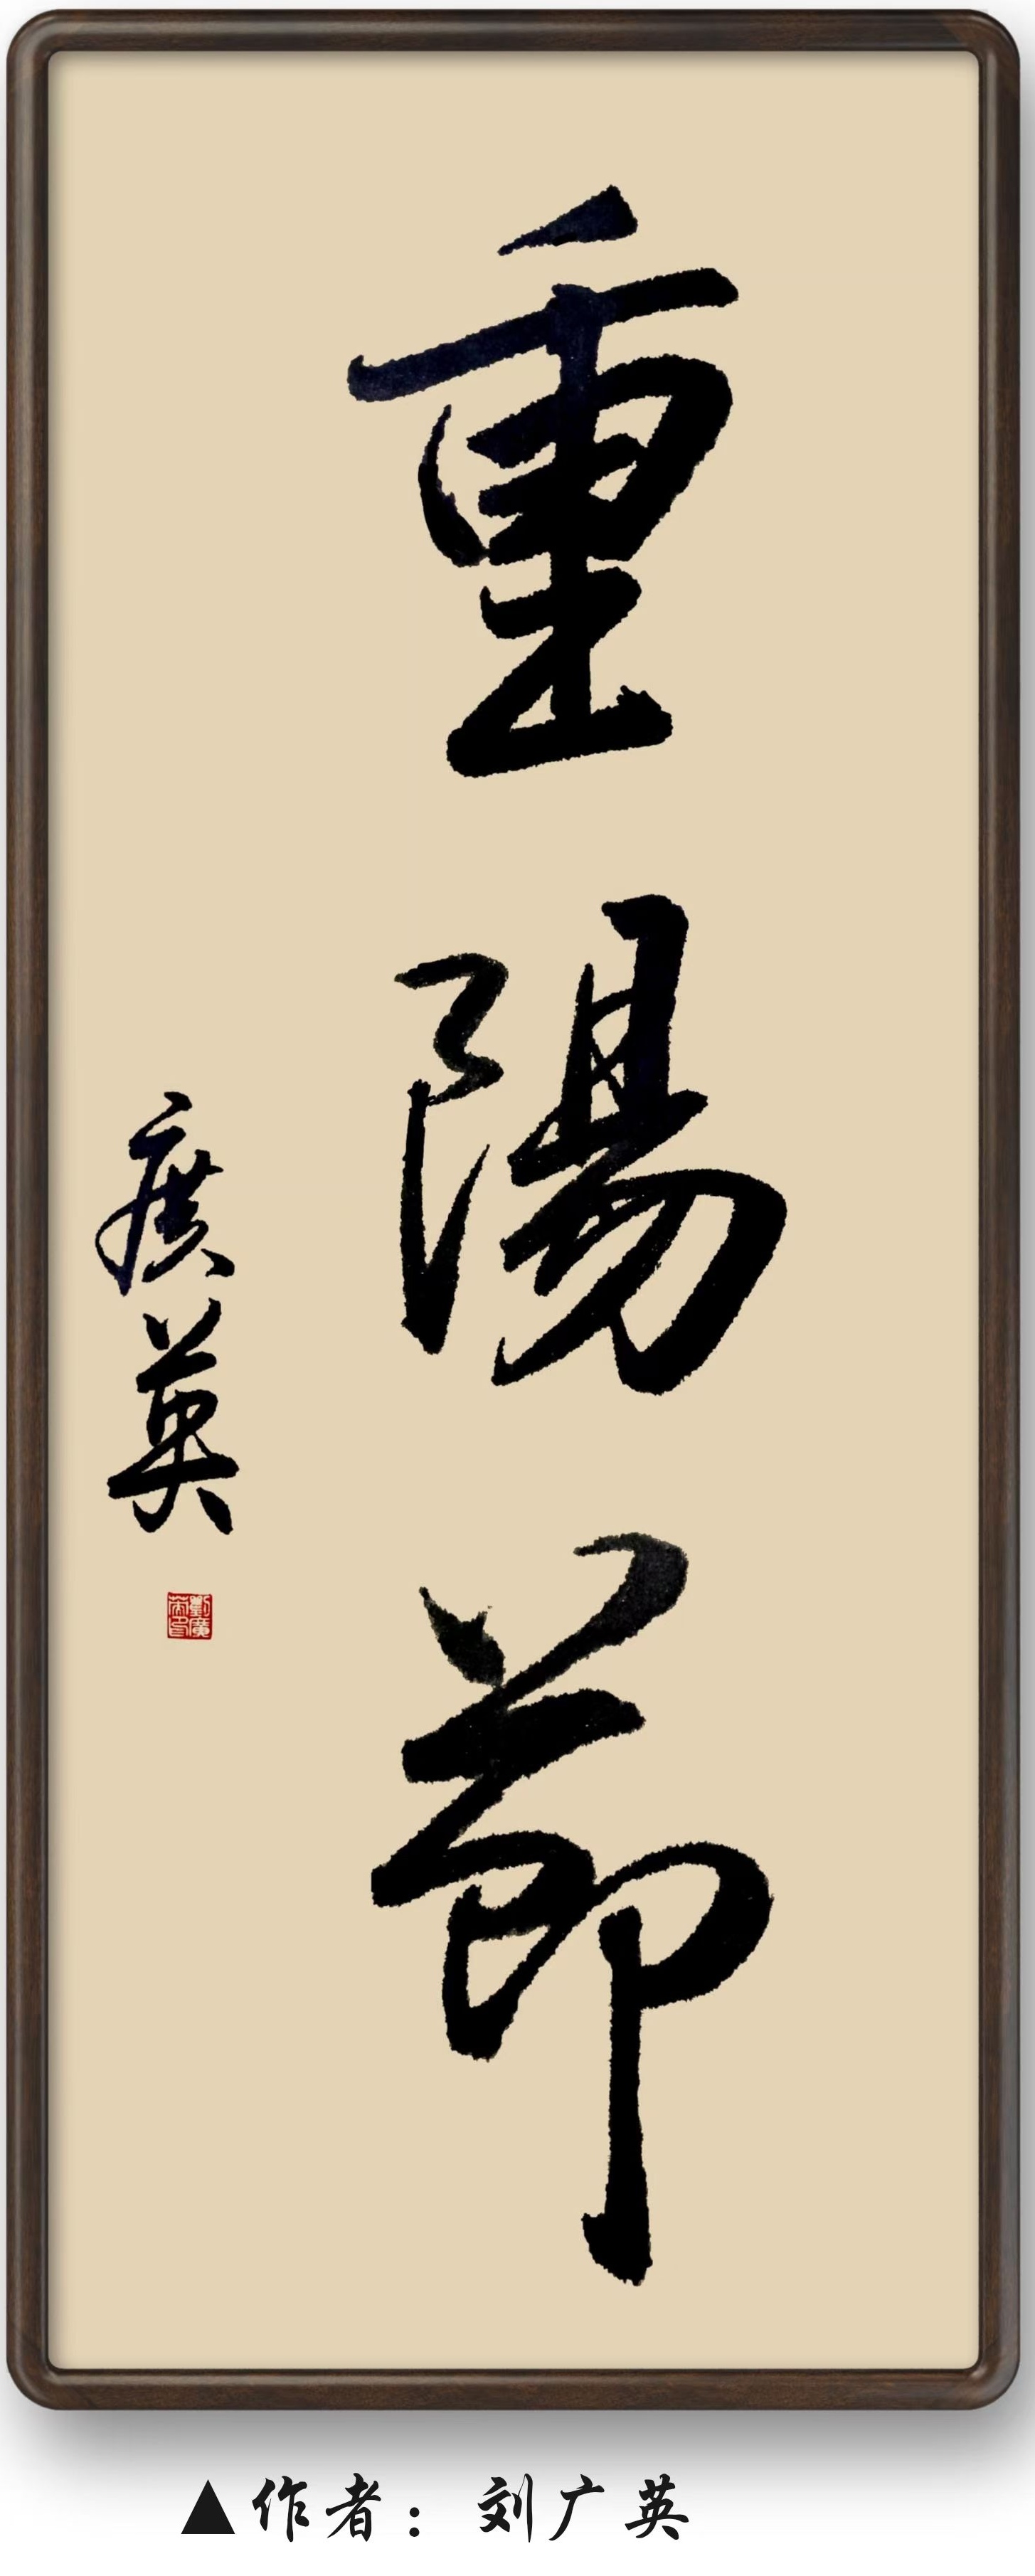 重陽節
廣英
劉廣英印
▲作者：刘广英